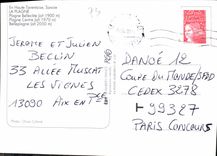 En Haute Tarentaise, Savoie
LA PLAGNE
Plagne Bellecôte (alt 1900 m)
Plagne Centre (alt 1970 m)
Belleplagne (alt 2050 m)
JEROME ET JULIEN
BECLIN
33 ALLEE MUSCAT
LES VIGNES
13090 AIX EN
DANOÉ 12
COUPE DU MONDE/SAD
CEDEX 3278
99327
PARIS CONCOURS